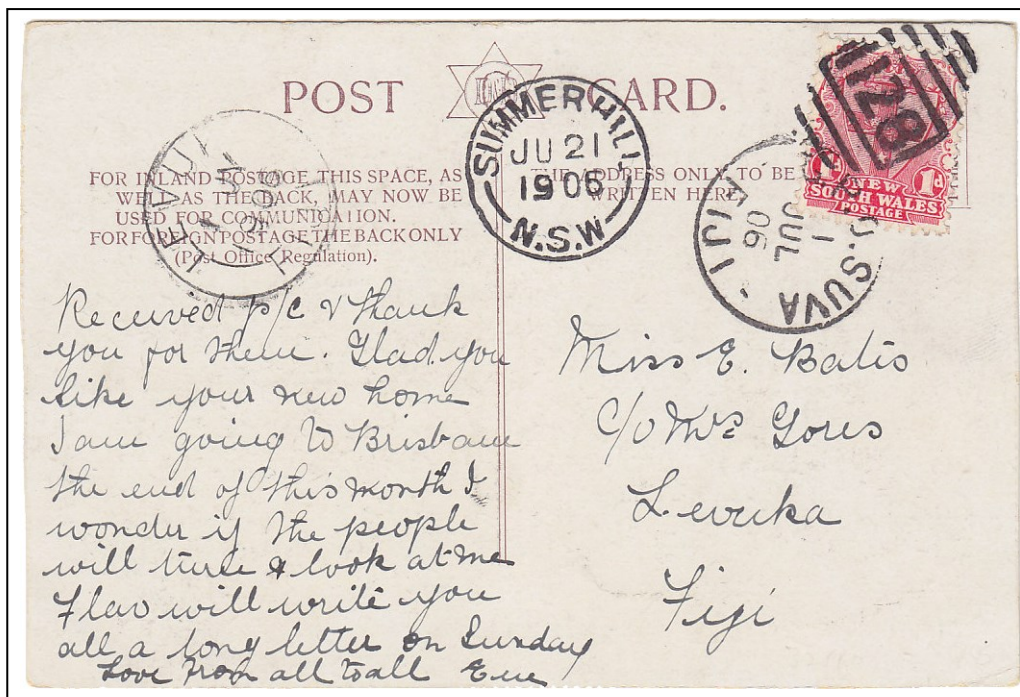 POST CARD.
FOR INLAND POSTAGE THIS SPACE, AS
WELL AS THE BACK, MAY NOW BE
USED FOR COMMUNICATION.
FOR FOREIGN POSTAGE THE BACK ONLY
(Post Office Regulation).
THE ADDRESS ONLY TO BE
WRITTEN HERE
SUMMER HILL
JU 21
1906
N.S.W
128
NEW
SOUTH WALES
POSTAGE
1d
G.P.O. SUVA · FIJI
1
JUL
06
LEVUKA
Received p/c & thank
you for them. Glad you
like your new home
I am going to Brisbane
the end of this month I
wonder if the people
will turn & look at me
Flav will write you
all a long letter on Sunday
Love from all to all
Miss E. Batis
c/o Mrs Gores
Levuka
Figi